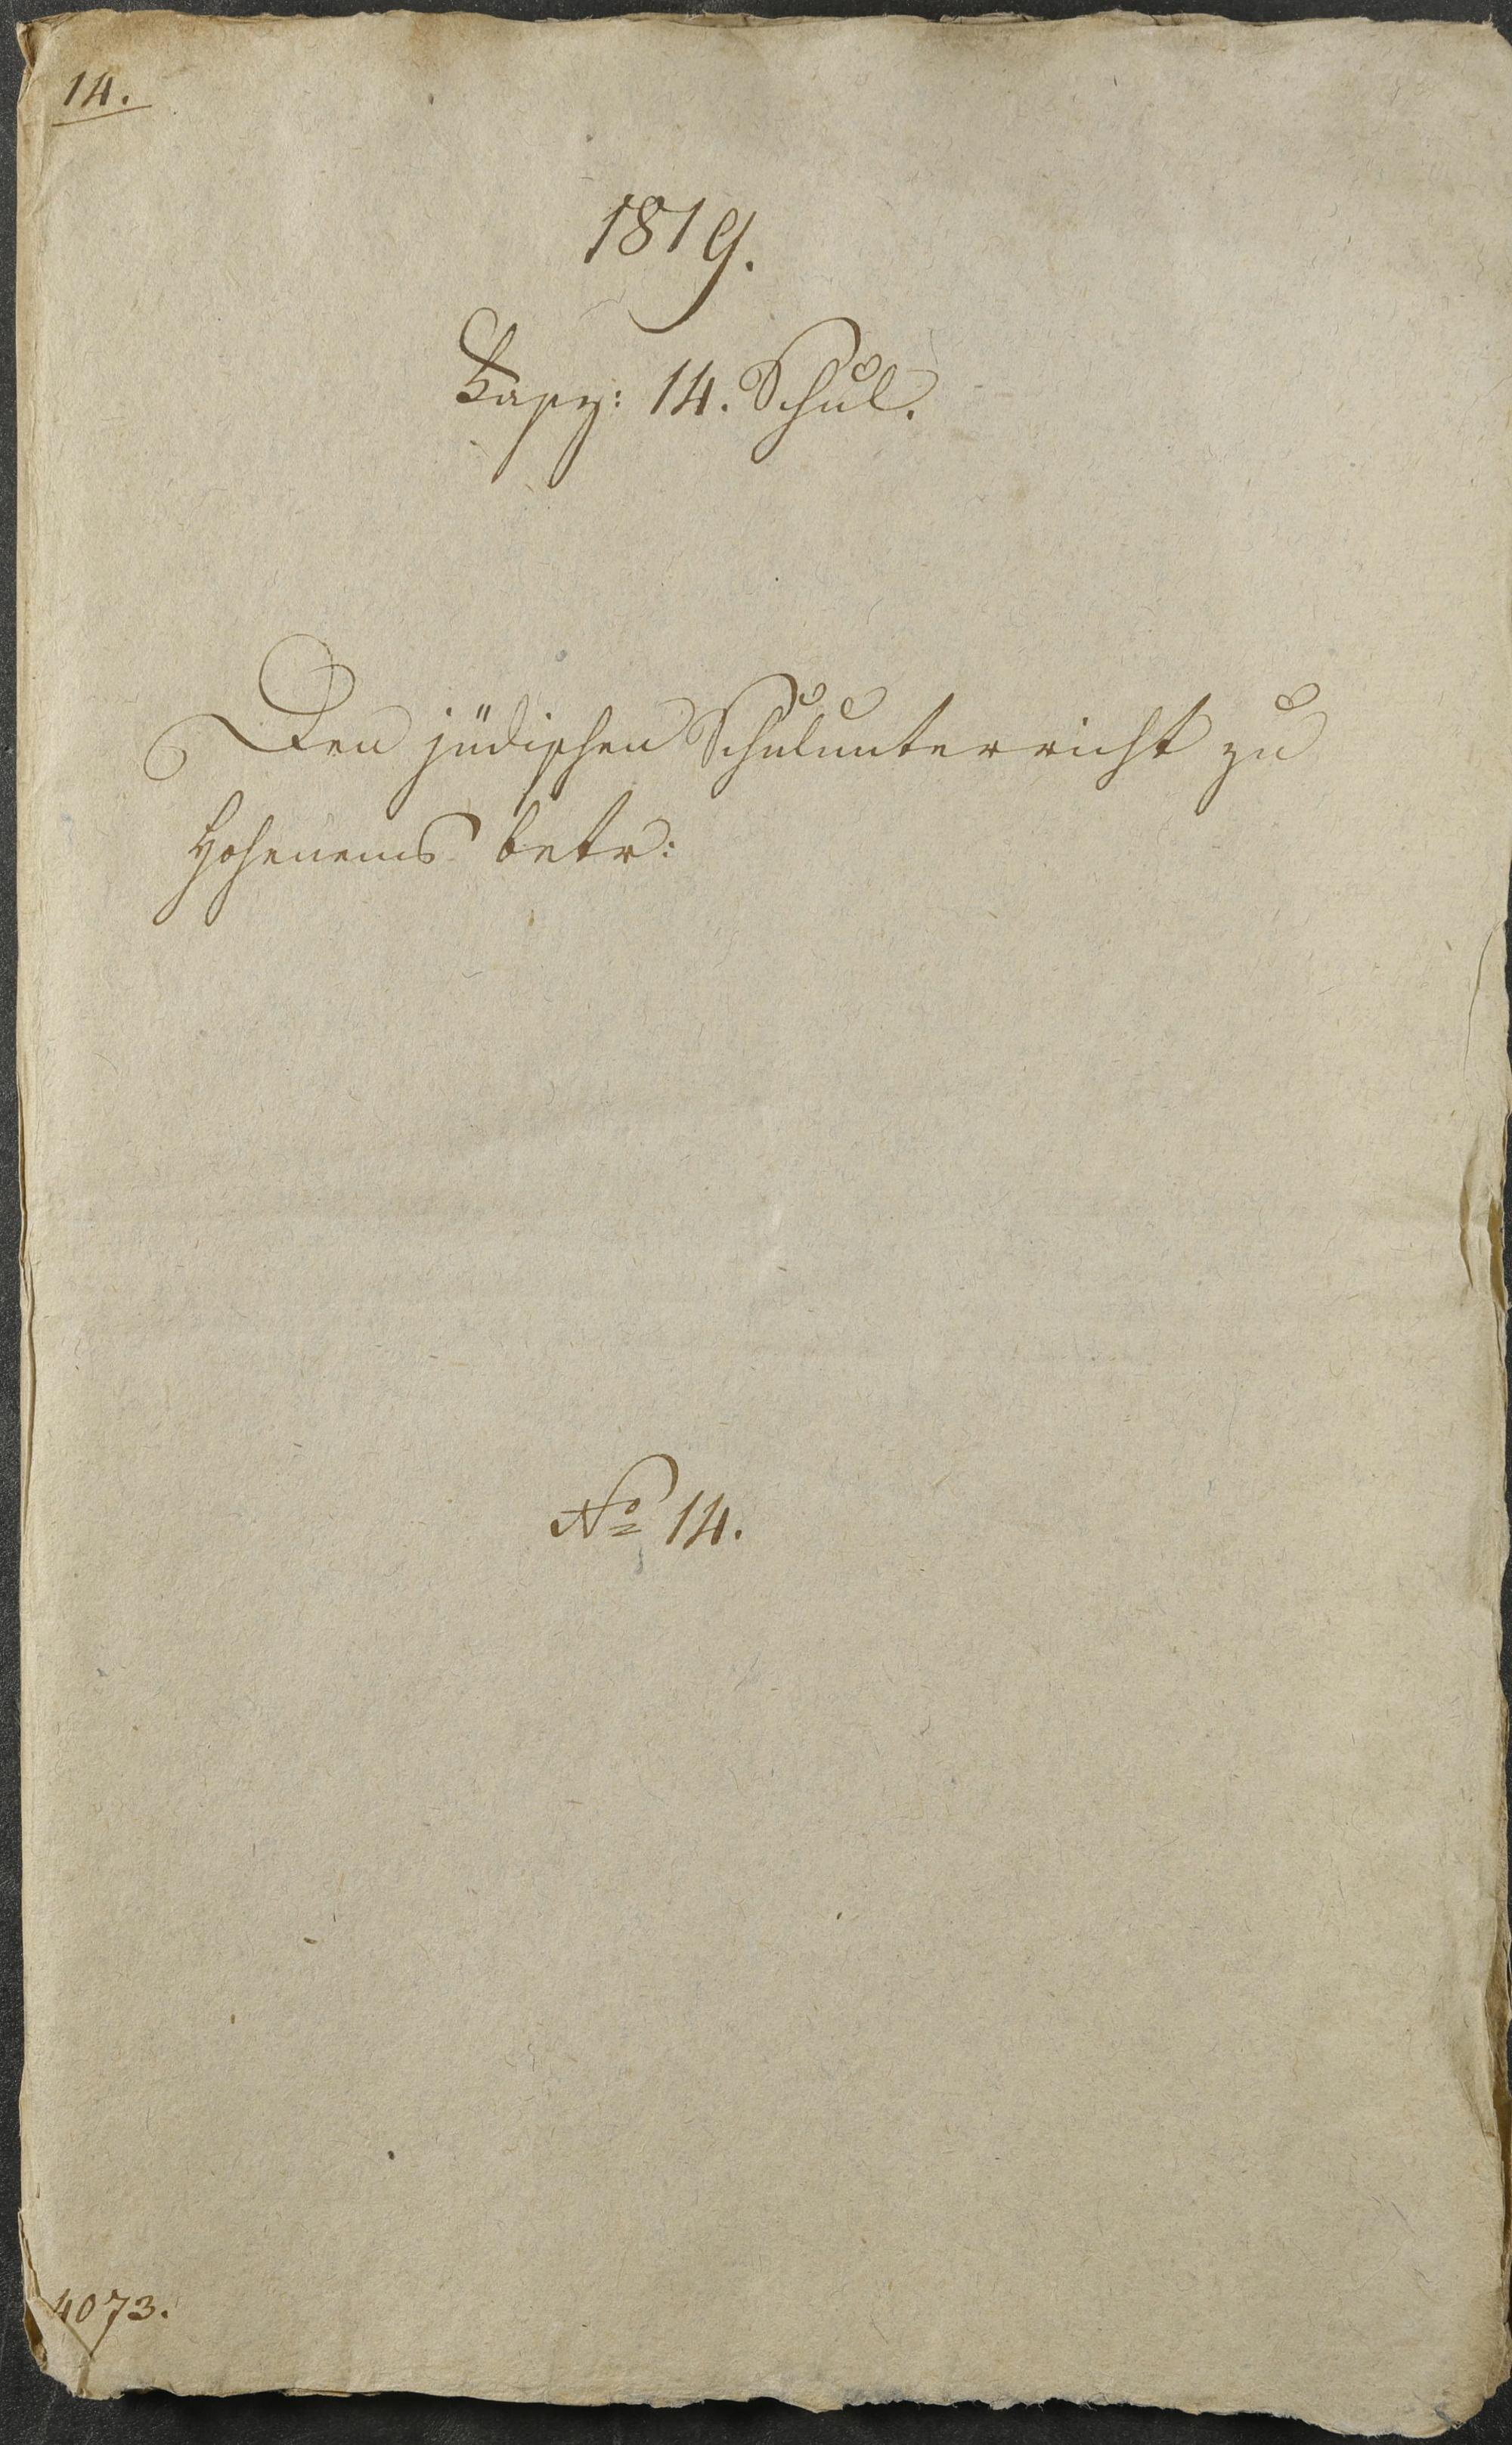 14.
1819.
Fasz: 14. Schul.
Den jüdischen Schulunterricht zu
Hohenems betr:
No 14.
4073.